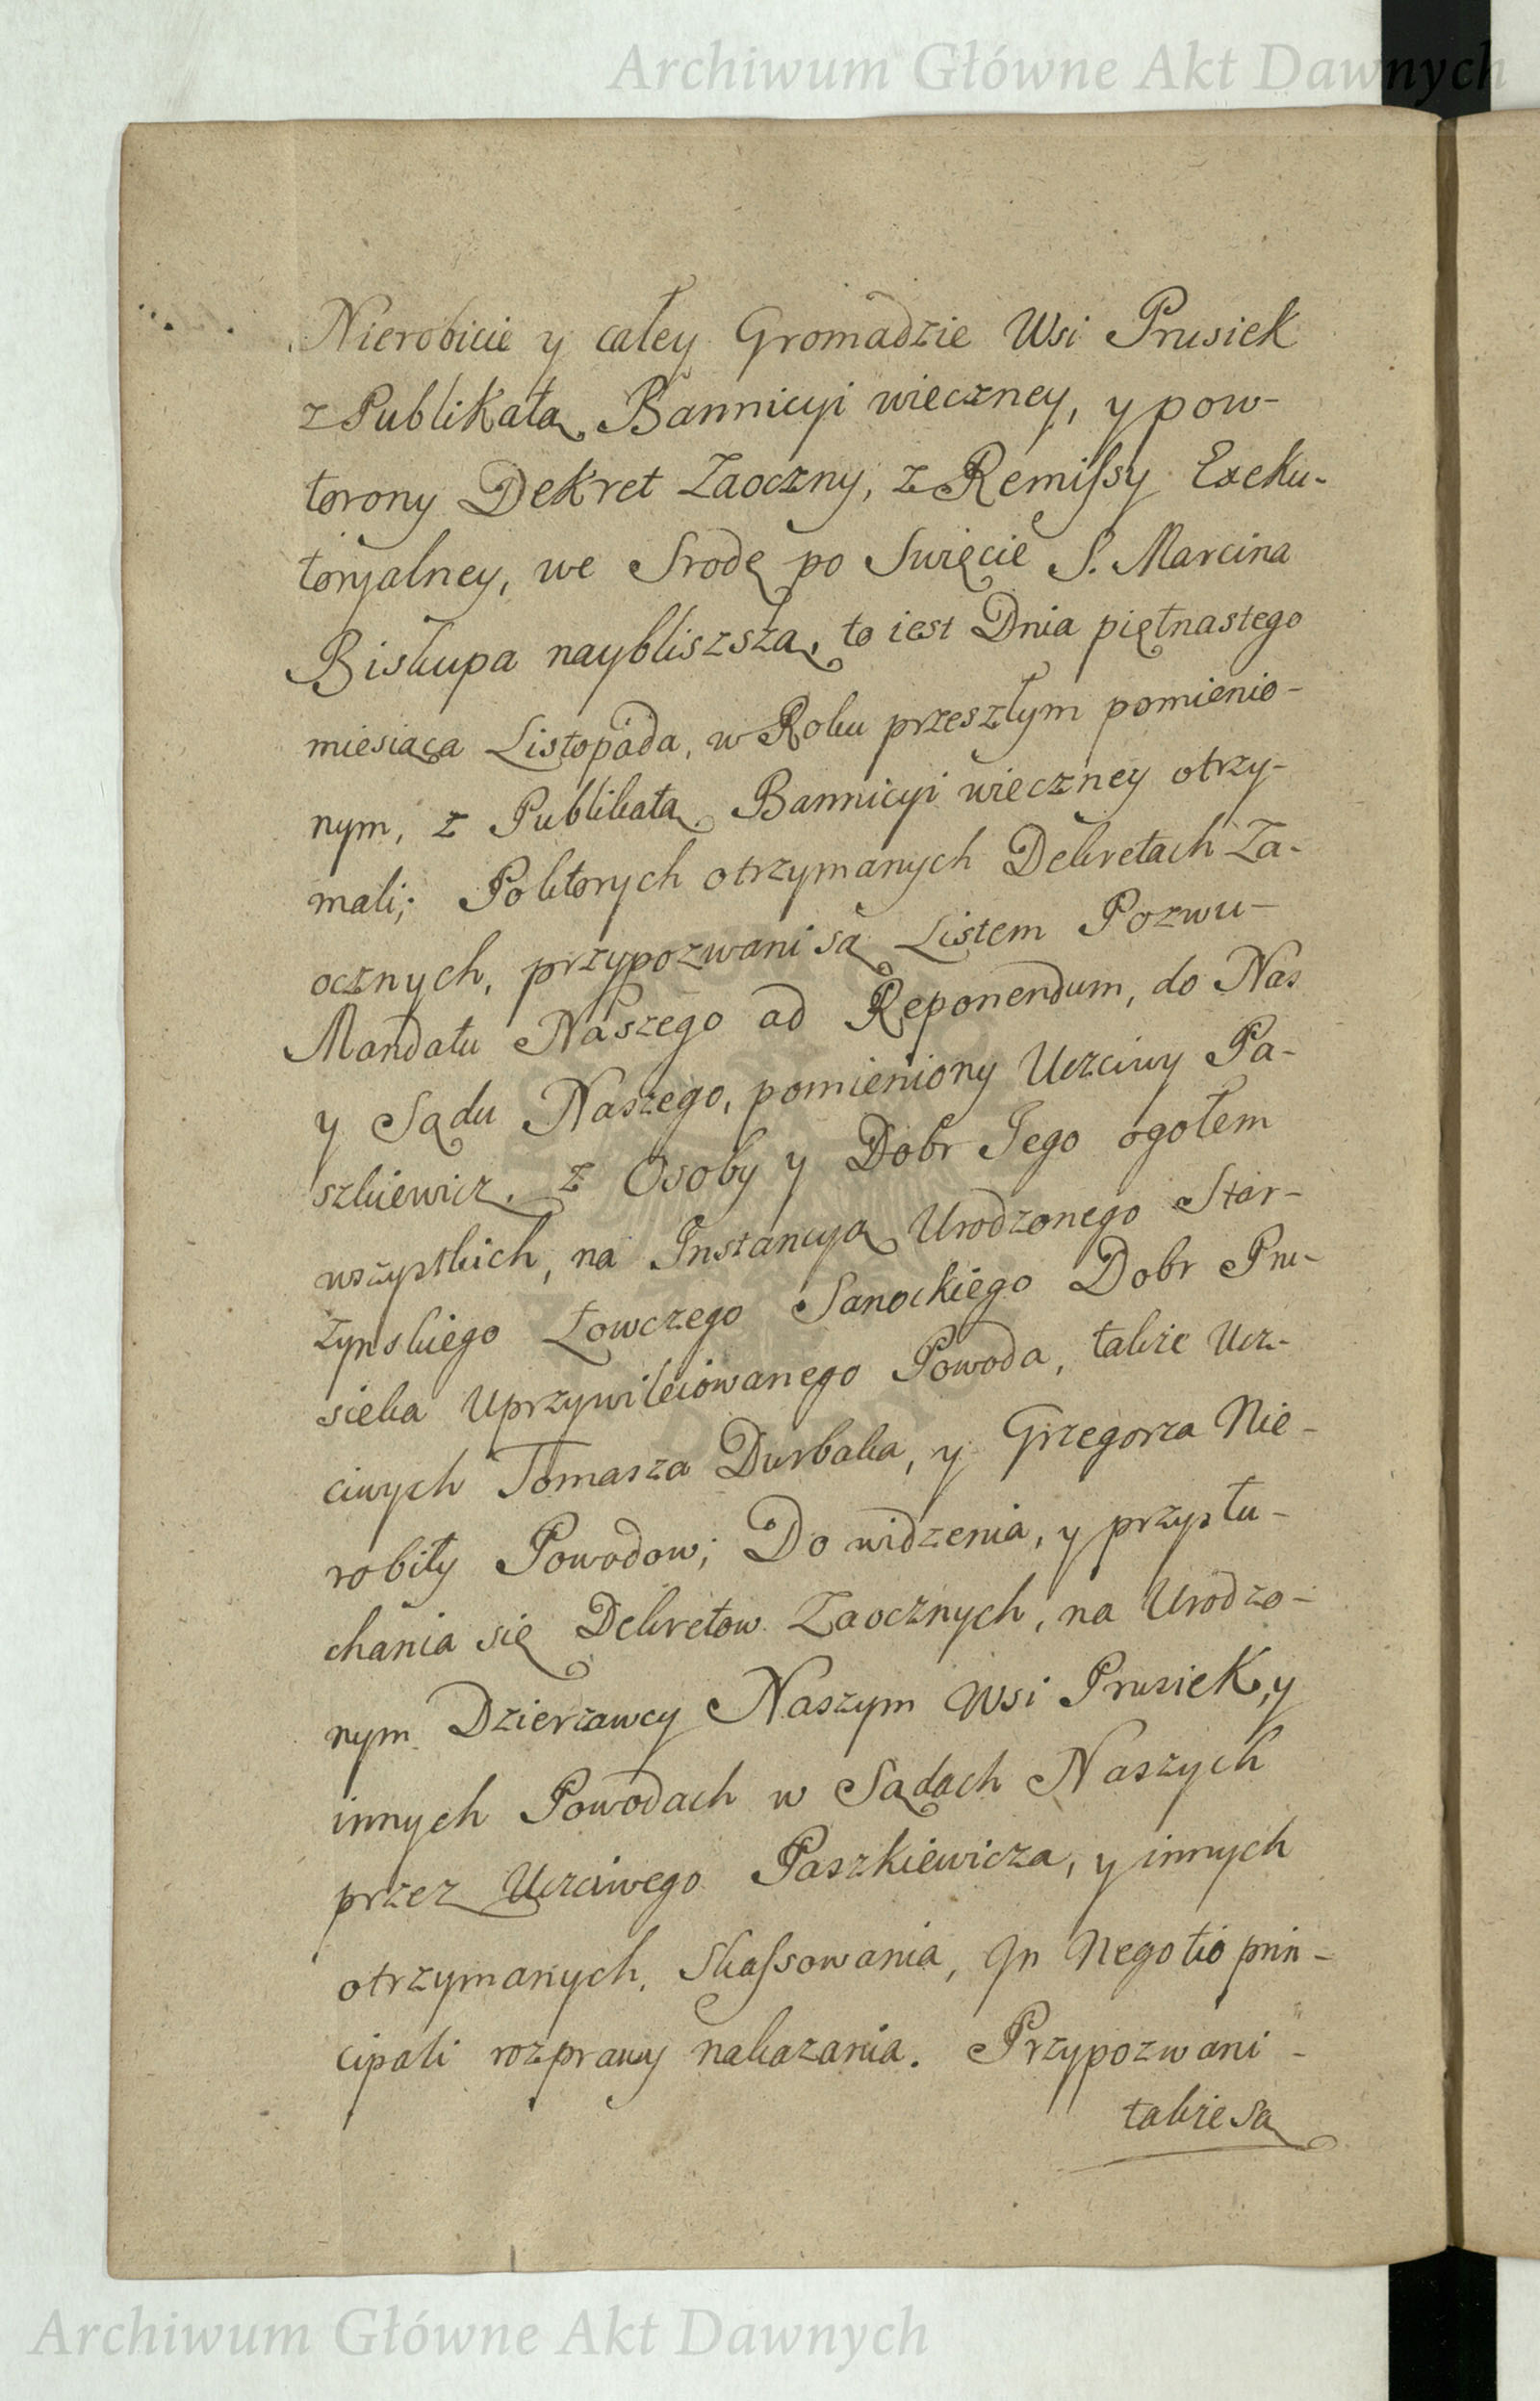 Archiwum Główne Akt Dawnych
Nierobicie y całey Gromadzie Wsi Prusiek
z Publikatą Bannicyi wieczney, y pow-
torony Dekret Zaoczny, z Remissy Exeku-
toryalney, we Srodę po Swięcie S. Marcina
Biskupa naybliszszą, to iest Dnia piętnastego
miesiąca Listopada, w Roku przeszłym pomienio-
nym, z Publikatą Bannicyi wieczney otrzy-
mali; Poktorych otrzymanych Dekretach Za-
ocznych, przypozwani są Listem Pozwu-
Mandatu Naszego ad Reponendum, do Nas
y Sądu Naszego, pomieniony Uczciwy Pa-
szkiewicz, z Osoby y Dobr Jego ogołem
wszystkich, na Instancyą Urodzonego Star-
zynskiego Łowczego Sanockiego Dobr Pru-
sieka Uprzywileiowanego Powoda, także Ucz-
ciwych Tomasza Durbaka, y Grzegorza Nie-
robiły Powodow; Do widzenia, y przysłu-
chania się Dekretow Zaocznych, na Urodzo-
nym Dzierżawcy Naszym Wsi Prusiek, y
innych Powodach w Sądach Naszych
przez Uczciwego Paszkiewicza, y innych
otrzymanych, Skassowania, In Negotio prin-
cipali rozprawy nakazania. Przypozwani -
także są
Archiwum Główne Akt Dawnych